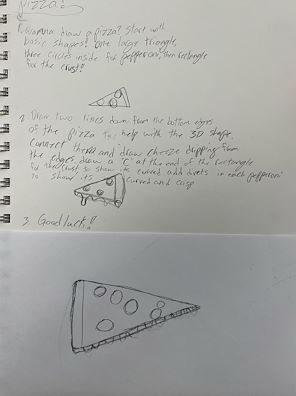 pizza:
1. Wanna draw a pizza? Start with
basic shapes! One large triangle,
three circles inside for pepperoni, then rectangle
for the crust!
2. Draw two lines down from the bottom edges
of the pizza to help with the 3D shape.
Connect them and draw cheeze dripping from
the edges, draw a "C" at the end of the rectangle
for the crust to show its curved add divets in each pepperoni
to show its curved and crisp
3. Good luck!!